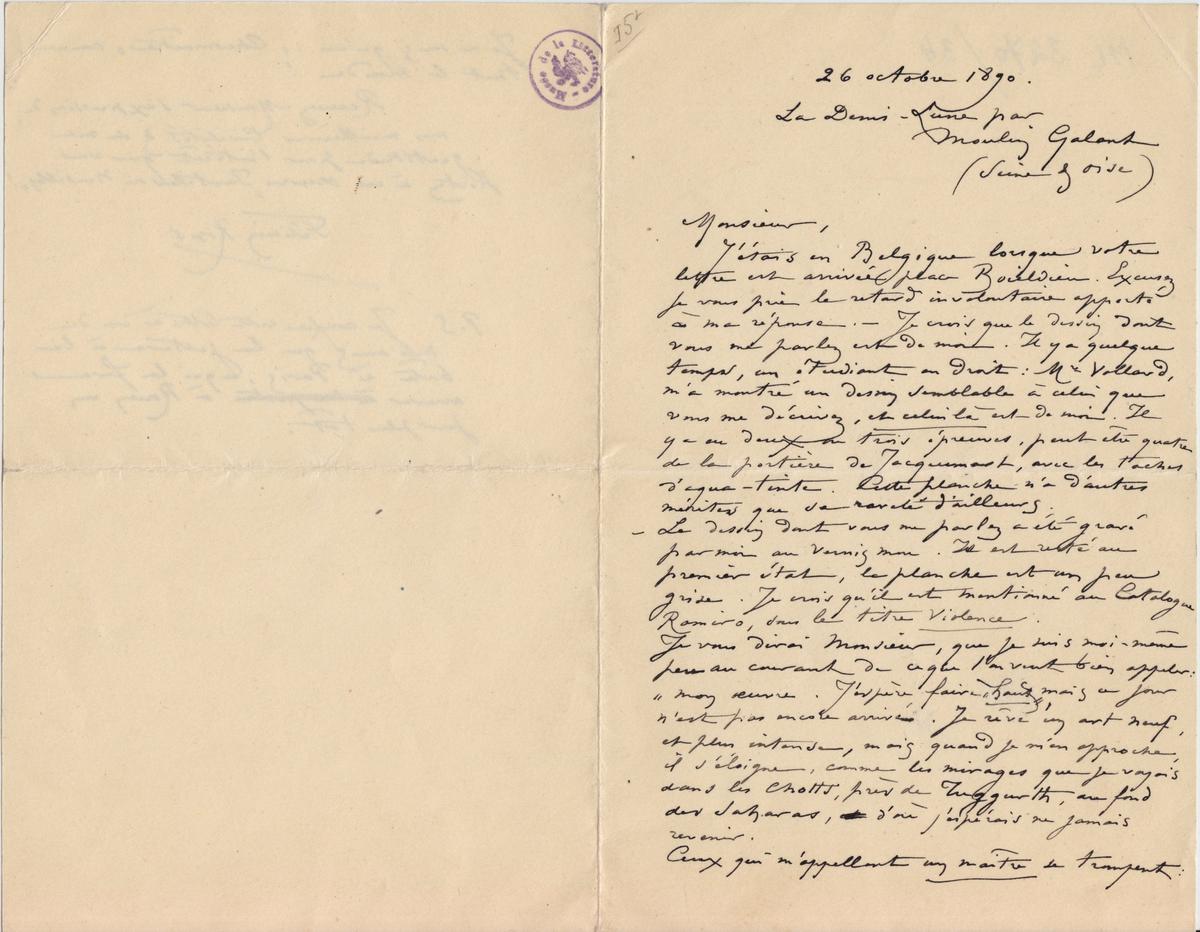 Musée de la Littérature
15r
26 octobre 1890.
La Demi-Lune par
Moulin Galant
(Seine & Oise)
Monsieur,
J'étais en Belgique lorsque votre
lettre est arrivée place Boieldieu. Excusez
je vous prie le retard involontaire apporté
à ma réponse. — Je crois que le dessin dont
vous me parlez est de moi. Il y a quelque
temps, un étudiant en droit : Mr Vollard,
m'a montré un dessin semblable à celui que
vous me décrivez, et celui là est de moi. Il
y a eu deux ou trois épreuves, peut être quatre
de la portière de Jacquemart, avec les taches
d'aqua-tinte. Cette planche n'a d'autres
mérites que sa rareté d'ailleurs.
– Le dessin dont vous me parlez a été gravé
par moi au vernis mou. Il est resté au
premier état, la planche est un peu
grise. Je crois qu'il est mentionné au Catalogue
Ramiro, sous le titre Violence.
Je vous dirai Monsieur, que je suis moi-même
peu au courant de ce que l'on veut bien appeler :
« mon œuvre. J'espère faire "haut" mais ce jour
n'est pas encore arrivé. Je rêve un art neuf,
et plus intense, mais quand je m'en approche,
il s'éloigne, comme les mirages que je voyais
dans les Chotts, près de Tuggurth, au fond
des Saharas, d'où j'espérais ne jamais
revenir.
Ceux qui m'appellent un maître se trompent :